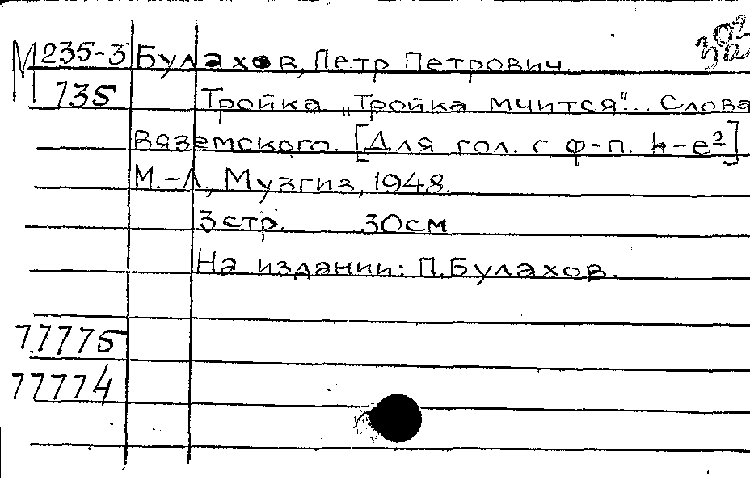 М 235-3 Булахов, Петр Петрович
735 Тройка „Тройка мчится“.. Слова
Вяземского. [Для гол. с ф-п. h-e²]
М.-Л., Музгиз, 1948
3 стр. 30 см
На издании: П. Булахов.
77775
77774